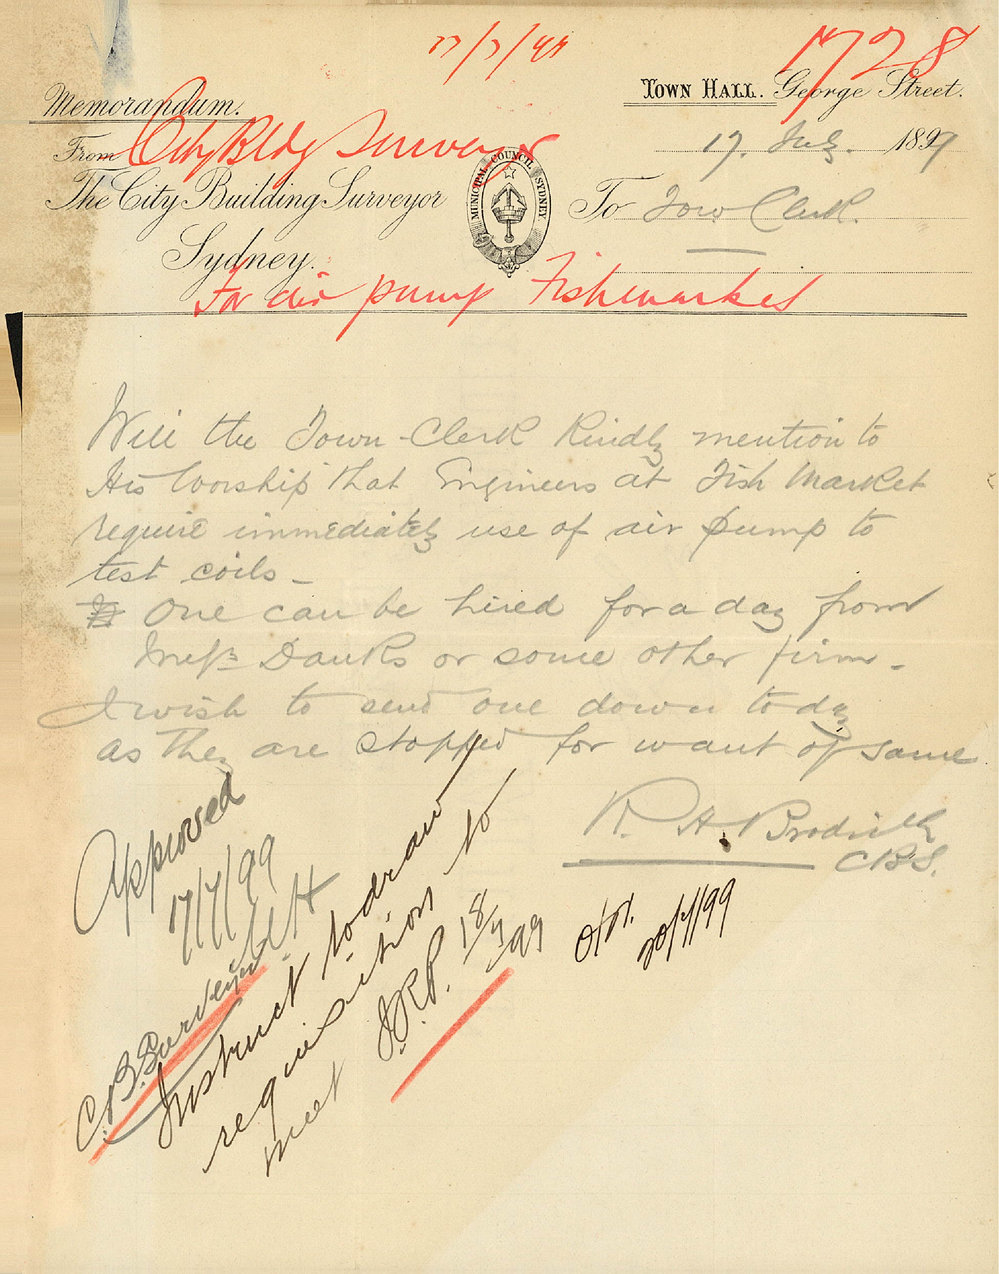 17/7/99
1728
Memorandum.
TOWN HALL. George Street.
From City Bldg Surveyor
17. July. 1899
The City Building Surveyor
MUNICIPAL COUNCIL SYDNEY
To Town Clerk.
Sydney.
For air pump Fishmarket
Will the Town-Clerk Kindly mention to
His Worship that Engineers at Fish Market
require immediately use of air pump to
test coils—
One can be hired for a day from
Messrs Danks or some other firm—
I wish to send one down today
as they are stopped for want of same
R. H. Brodrick
CBS.
Approved
17/7/99
C.B. Surveyor
Instruct to draw
requisition to
meet
18/7/99
20/7/99